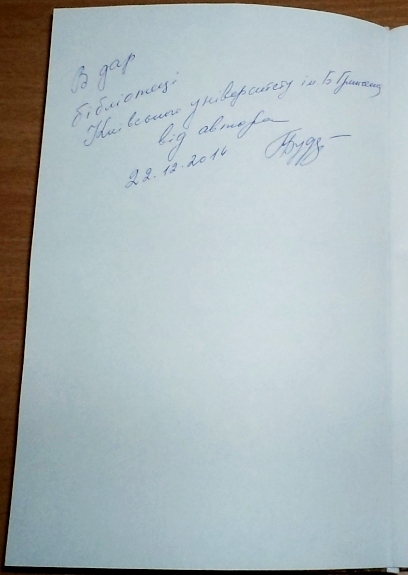 В дар
бібліотеці
Київського університету ім Б Грінченка
від автора
22.12.2014